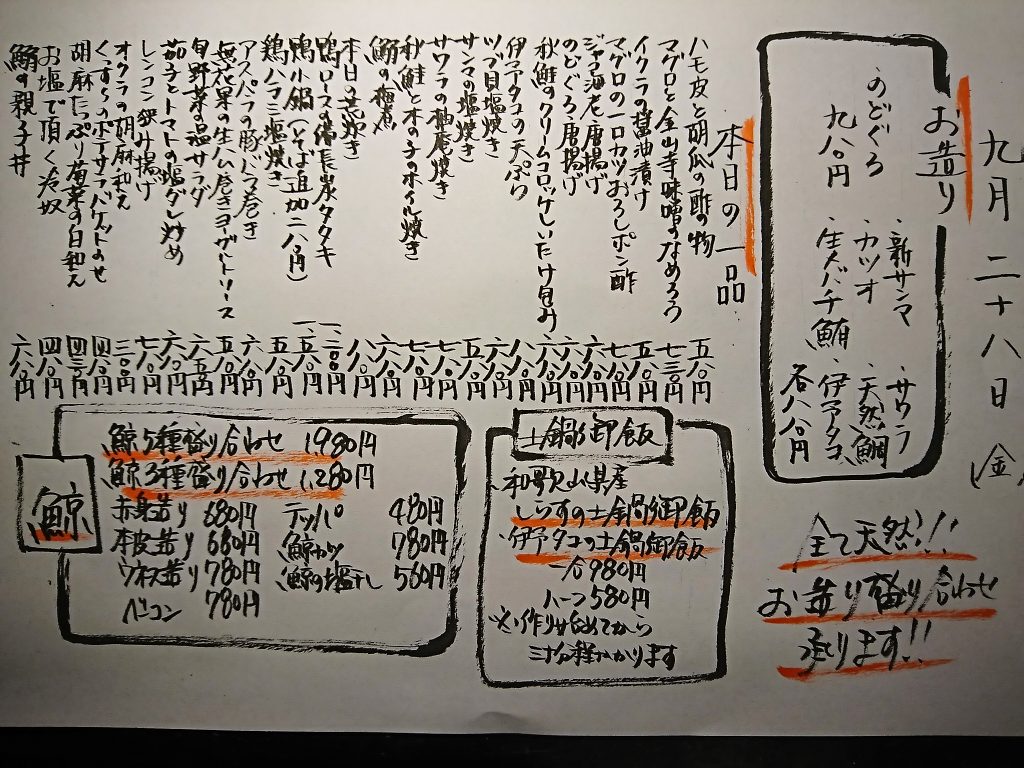 九月二十八日(金)
お造り
・新サンマ ・サワラ
・カツオ ・天然鯛
・生メバチ鮪 ・伊予タコ
・のどぐろ
九八〇円
各八八〇円
全て天然!!
お造り盛り合わせ
承ります!!
本日の一品
ハモ皮と胡瓜の酢の物 五八〇円
マグロと金山寺味噌のなめろう 七三〇円
イクラの醤油漬け 五八〇円
マグロの一口カツおろしポン酢 七八〇円
ジャコ海老唐揚げ 六八〇円
のどぐろ唐揚げ 六八〇円
秋鮭のクリームコロッケしいたけ包み 六八〇円
伊予タコの天ぷら 八八〇円
ツブ貝塩焼き 六八〇円
サンマの塩焼き 七八〇円
サワラの柚庵焼き 七八〇円
秋鮭と木の子のホイル焼き 六八〇円
鰤の梅煮 八八〇円
本日の兜焼き
鴨ロースの備長炭タタキ 一、二〇〇円
鴨小鍋(そば追加二八〇円) 一、一八〇円
鶏ハラミ塩焼き 五八〇円
アスパラの豚バラ巻き 六八〇円
無花果の生ハム巻きヨーグルトソース 五八〇円
旬野菜の温サラダ 六五〇円
茄子とトマトの塩ダレ炒め 六八〇円
レンコン挟み揚げ 七八〇円
オクラの胡麻和え 三八〇円
くずし豆腐のポテサラバケットのせ 四八〇円
胡麻たっぷり菊菜の白和え 四三〇円
お塩で頂く冷奴 四八〇円
鰤の親子丼 六八〇円
土鍋御飯
和歌山県産
しらすの土鍋御飯
伊予タコの土鍋御飯
一合980円
ハーフ580円
※作り始めてから
三十分程かかります
鯨
鯨5種盛り合わせ 1,980円
鯨3種盛り合わせ 1,280円
赤身造り 680円 テッパ 480円
本皮造り 680円 鯨カツ 780円
ウネス造り 780円 鯨の塩干し 560円
ベーコン 780円